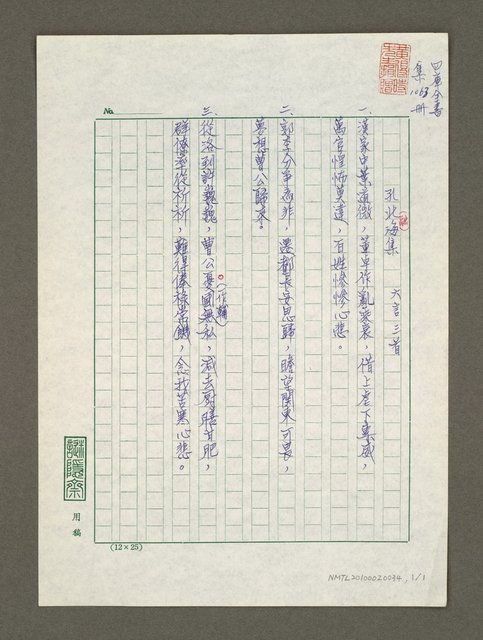 四庫全書
集1063冊
孔北海集
(融)
六言三首
一、漢家中葉道微,董卓作亂乘衰,僭上虐下專威,
萬官惶怖莫違,百姓慘慘心悲。
二、郭李分爭為非,遷都長安思歸,瞻望關東可哀,
夢想曹公歸來。
三、從洛到許巍巍,曹公憂國無私,減去厨膳甘肥,
(一作輔)
群僚率從祈祈,雖得俸祿常饑,念我苦寒心悲。
No.
謎隱齋
用稿
(12×25)
NMTL20100020034, 1/1